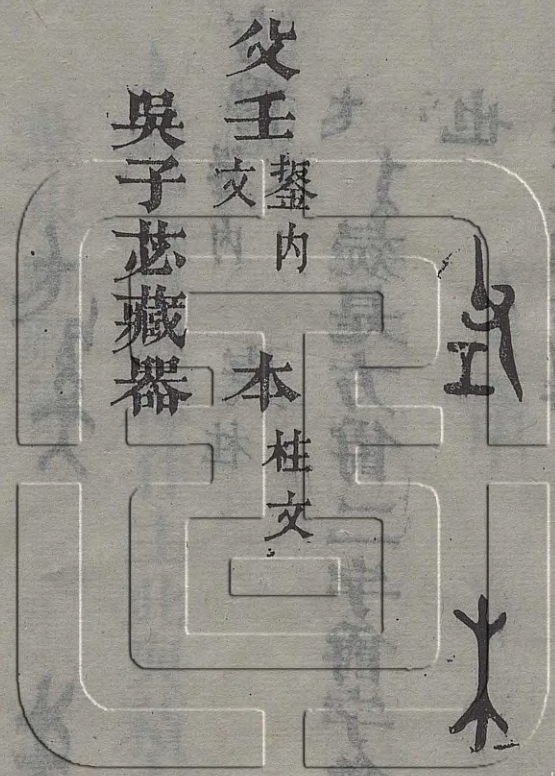 父壬鋬内文 本柱文
吳子苾藏器